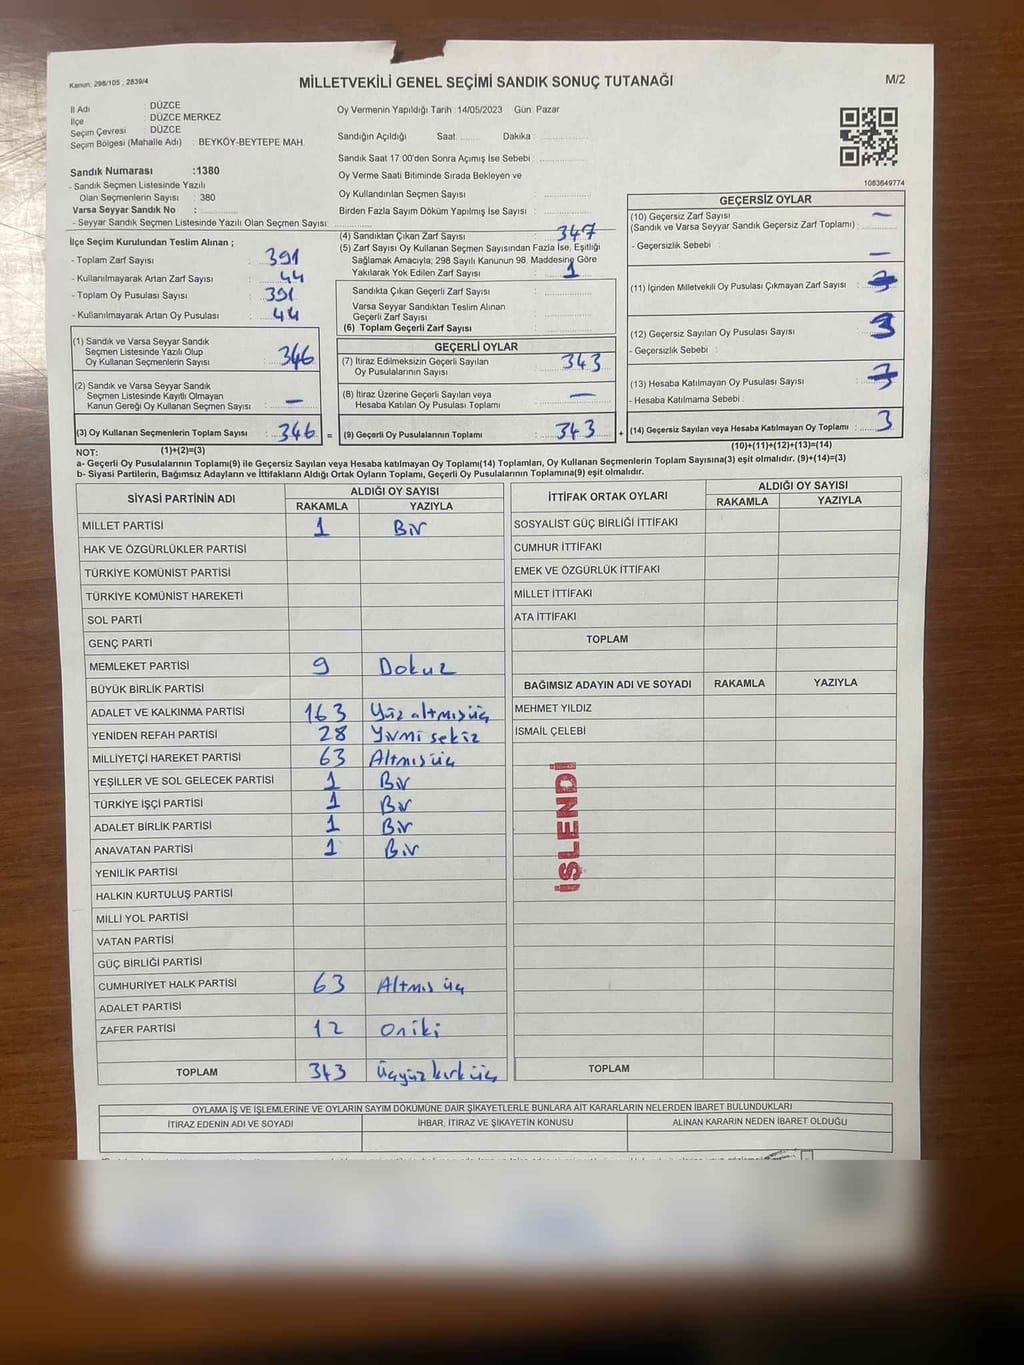 Kanun: 298/105 , 2839/4
MİLLETVEKİLİ GENEL SEÇİMİ SANDIK SONUÇ TUTANAĞI
M/2
İl Adı : DÜZCE
İlçe : DÜZCE MERKEZ
Seçim Çevresi : DÜZCE
Seçim Bölgesi (Mahalle Adı) : BEYKÖY-BEYTEPE MAH.
Oy Vermenin Yapıldığı Tarih :14/05/2023 Gün: Pazar
Sandığın Açıldığı Saat:....... Dakika :
Sandık Saat 17:00'den Sonra Açımış İse Sebebi :
Oy Verme Saati Bitiminde Sırada Bekleyen ve
Oy Kullandırılan Seçmen Sayısı :
Birden Fazla Sayım Döküm Yapılmış İse Sayısı :
1083649774
Sandık Numarası :1380
- Sandık Seçmen Listesinde Yazılı
Olan Seçmenlerin Sayısı : 380
Varsa Seyyar Sandık No :
- Seyyar Sandık Seçmen Listesinde Yazılı Olan Seçmen Sayısı:
İlçe Seçim Kurulundan Teslim Alınan ;
- Toplam Zarf Sayısı : 391
- Kullanılmayarak Artan Zarf Sayısı : 44
- Toplam Oy Pusulası Sayısı : 391
- Kullanılmayarak Artan Oy Pusulası : 44
(1) Sandık ve Varsa Seyyar Sandık
Seçmen Listesinde Yazılı Olup
Oy Kullanan Seçmenlerin Sayısı : 346
(2) Sandık ve Varsa Seyyar Sandık
Seçmen Listesinde Kayıtlı Olmayan
Kanun Gereği Oy Kullanan Seçmen Sayısı : —
(3) Oy Kullanan Seçmenlerin Toplam Sayısı : 346 =
(1)+(2)=(3)
(4) Sandıktan Çıkan Zarf Sayısı : 347
(5) Zarf Sayısı Oy Kullanan Seçmen Sayısından Fazla İse, Eşitliği
Sağlamak Amacıyla; 298 Sayılı Kanunun 98. Maddesine Göre
Yakılarak Yok Edilen Zarf Sayısı : 1
Sandıkta Çıkan Geçerli Zarf Sayısı :
Varsa Seyyar Sandıktan Teslim Alınan
Geçerli Zarf Sayısı :
(6) Toplam Geçerli Zarf Sayısı :
GEÇERLİ OYLAR
(7) İtiraz Edilmeksizin Geçerli Sayılan
Oy Pusulalarının Sayısı : 343
(8) İtiraz Üzerine Geçerli Sayılan veya
Hesaba Katılan Oy Pusulası Toplamı : —
(9) Geçerli Oy Pusulalarının Toplamı : 343 +
GEÇERSİZ OYLAR
(10) Geçersiz Zarf Sayısı —
(Sandık ve Varsa Seyyar Sandık Geçersiz Zarf Toplamı) :
- Geçersizlik Sebebi : —
(11) İçinden Milletvekili Oy Pusulası Çıkmayan Zarf Sayısı :
(12) Geçersiz Sayılan Oy Pusulası Sayısı : 3
- Geçersizlik Sebebi :
(13) Hesaba Katılmayan Oy Pusulası Sayısı :
- Hesaba Katılmama Sebebi :
(14) Geçersiz Sayılan veya Hesaba Katılmayan Oy Toplamı : 3
(10)+(11)+(12)+(13)=(14)
NOT:
a- Geçerli Oy Pusulalarının Toplamı(9) ile Geçersiz Sayılan veya Hesaba katılmayan Oy Toplamı(14) Toplamları, Oy Kullanan Seçmenlerin Toplam Sayısına(3) eşit olmalıdır. (9)+(14)=(3)
b- Siyasi Partilerin, Bağımsız Adayların ve İttifakların Aldığı Ortak Oyların Toplamı, Geçerli Oy Pusulalarının Toplamına(9) eşit olmalıdır.
SİYASİ PARTİNİN ADI ALDIĞI OY SAYISI
RAKAMLA YAZIYLA
MİLLET PARTİSİ 1 Bir
HAK VE ÖZGÜRLÜKLER PARTİSİ
TÜRKİYE KOMÜNİST PARTİSİ
TÜRKİYE KOMÜNİST HAREKETİ
SOL PARTİ
GENÇ PARTİ
MEMLEKET PARTİSİ 9 Dokuz
BÜYÜK BİRLİK PARTİSİ
ADALET VE KALKINMA PARTİSİ 163 Yüz altmış üç
YENİDEN REFAH PARTİSİ 28 Yirmi sekiz
MİLLİYETÇİ HAREKET PARTİSİ 63 Altmış üç
YEŞİLLER VE SOL GELECEK PARTİSİ 1 Bir
TÜRKİYE İŞÇİ PARTİSİ 1 Bir
ADALET BİRLİK PARTİSİ 1 Bir
ANAVATAN PARTİSİ 1 Bir
YENİLİK PARTİSİ
HALKIN KURTULUŞ PARTİSİ
MİLLİ YOL PARTİSİ
VATAN PARTİSİ
GÜÇ BİRLİĞİ PARTİSİ
CUMHURİYET HALK PARTİSİ 63 Altmış üç
ADALET PARTİSİ
ZAFER PARTİSİ 12 Oniki
TOPLAM 343 Üçyüz kırk üç
İTTİFAK ORTAK OYLARI ALDIĞI OY SAYISI
RAKAMLA YAZIYLA
SOSYALİST GÜÇ BİRLİĞİ İTTİFAKI
CUMHUR İTTİFAKI
EMEK VE ÖZGÜRLÜK İTTİFAKI
MİLLET İTTİFAKI
ATA İTTİFAKI
TOPLAM
BAĞIMSIZ ADAYIN ADI VE SOYADI RAKAMLA YAZIYLA
MEHMET YILDIZ
İSMAİL ÇELEBİ
İŞLENDİ
TOPLAM
OYLAMA İŞ VE İŞLEMLERİNE VE OYLARIN SAYIM DÖKÜMÜNE DAİR ŞİKAYETLERLE BUNLARA AİT KARARLARIN NELERDEN İBARET BULUNDUKLARI
İTİRAZ EDENİN ADI VE SOYADI İHBAR, İTİRAZ VE ŞİKAYETİN KONUSU ALINAN KARARIN NEDEN İBARET OLDUĞU